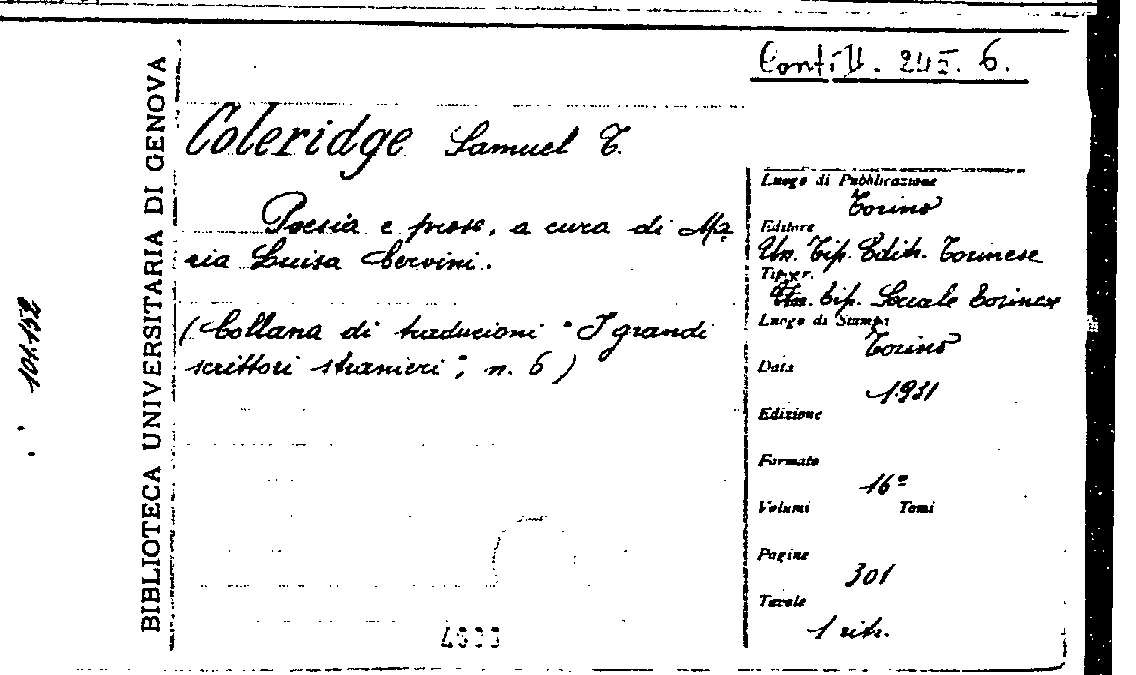 BIBLIOTECA UNIVERSITARIA DI GENOVA
101.152
Coleridge Samuel T.
Poesia e prose, a cura di Ma
ria Luisa Cervini.
(Collana di traducioni "I grandi
scrittori stranieri", n. 6)
6.
Luogo di Pubblicazione
Torino
Editore
Un. Tip. Edit. Torinese
Tipogr.
Un. Tip. Sociale Torinese
Luogo di Stampa
Torino
Data
1931
Edizione
Formato
16º
Volumi Tomi
Pagine
301
Tavole
1 ritr.